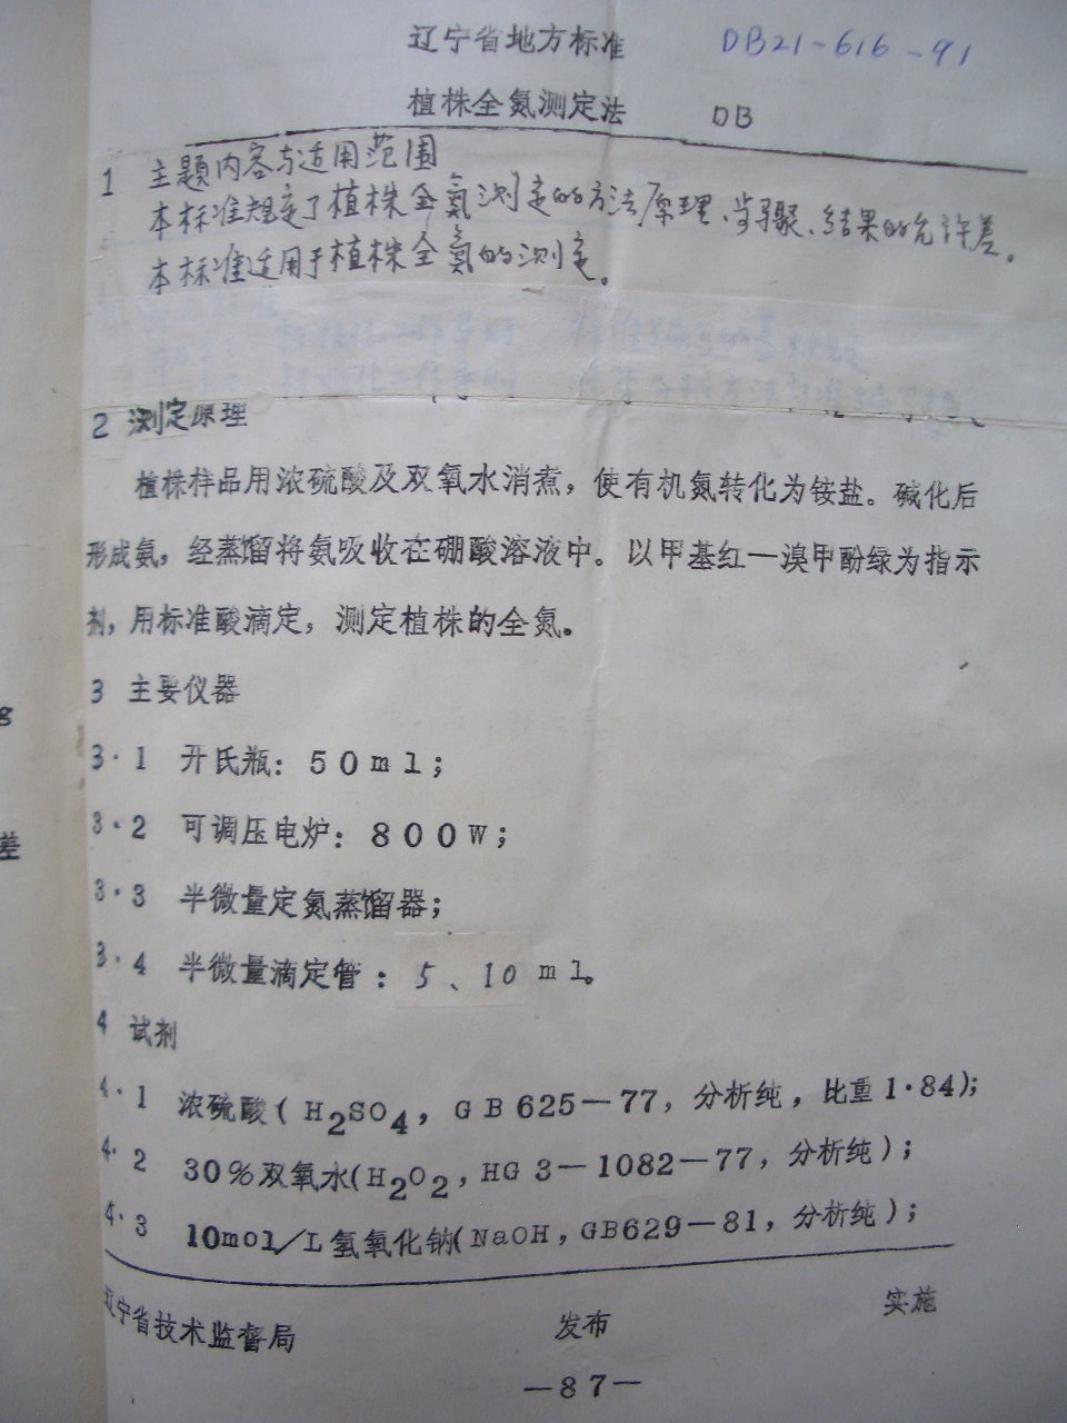 辽宁省地方标准 DB21-616-91
植株全氮测定法 DB
1 主题内容与适用范围
本标准规定了植株全氮测定的方法原理、步骤、结果的允许差。
本标准适用于植株全氮的测定。
2 测定原理
植株样品用浓硫酸及双氧水消煮，使有机氮转化为铵盐。碱化后
形成氨，经蒸馏将氨吸收在硼酸溶液中。以甲基红—溴甲酚绿为指示
剂，用标准酸滴定，测定植株的全氮。
3 主要仪器
8
3·1 开氏瓶：50ml；
3·2 可调压电炉：800W；
差
3·3 半微量定氮蒸馏器；
3·4 半微量滴定管：5、10ml。
4 试剂
4·1 浓硫酸(H2SO4，GB625—77，分析纯，比重1·84)；
4·2 30%双氧水(H2O2，HG3—1082—77，分析纯)；
4·3 10mol/L氢氧化钠(NaOH，GB629—81，分析纯)；
辽宁省技术监督局 发布 实施
—87—